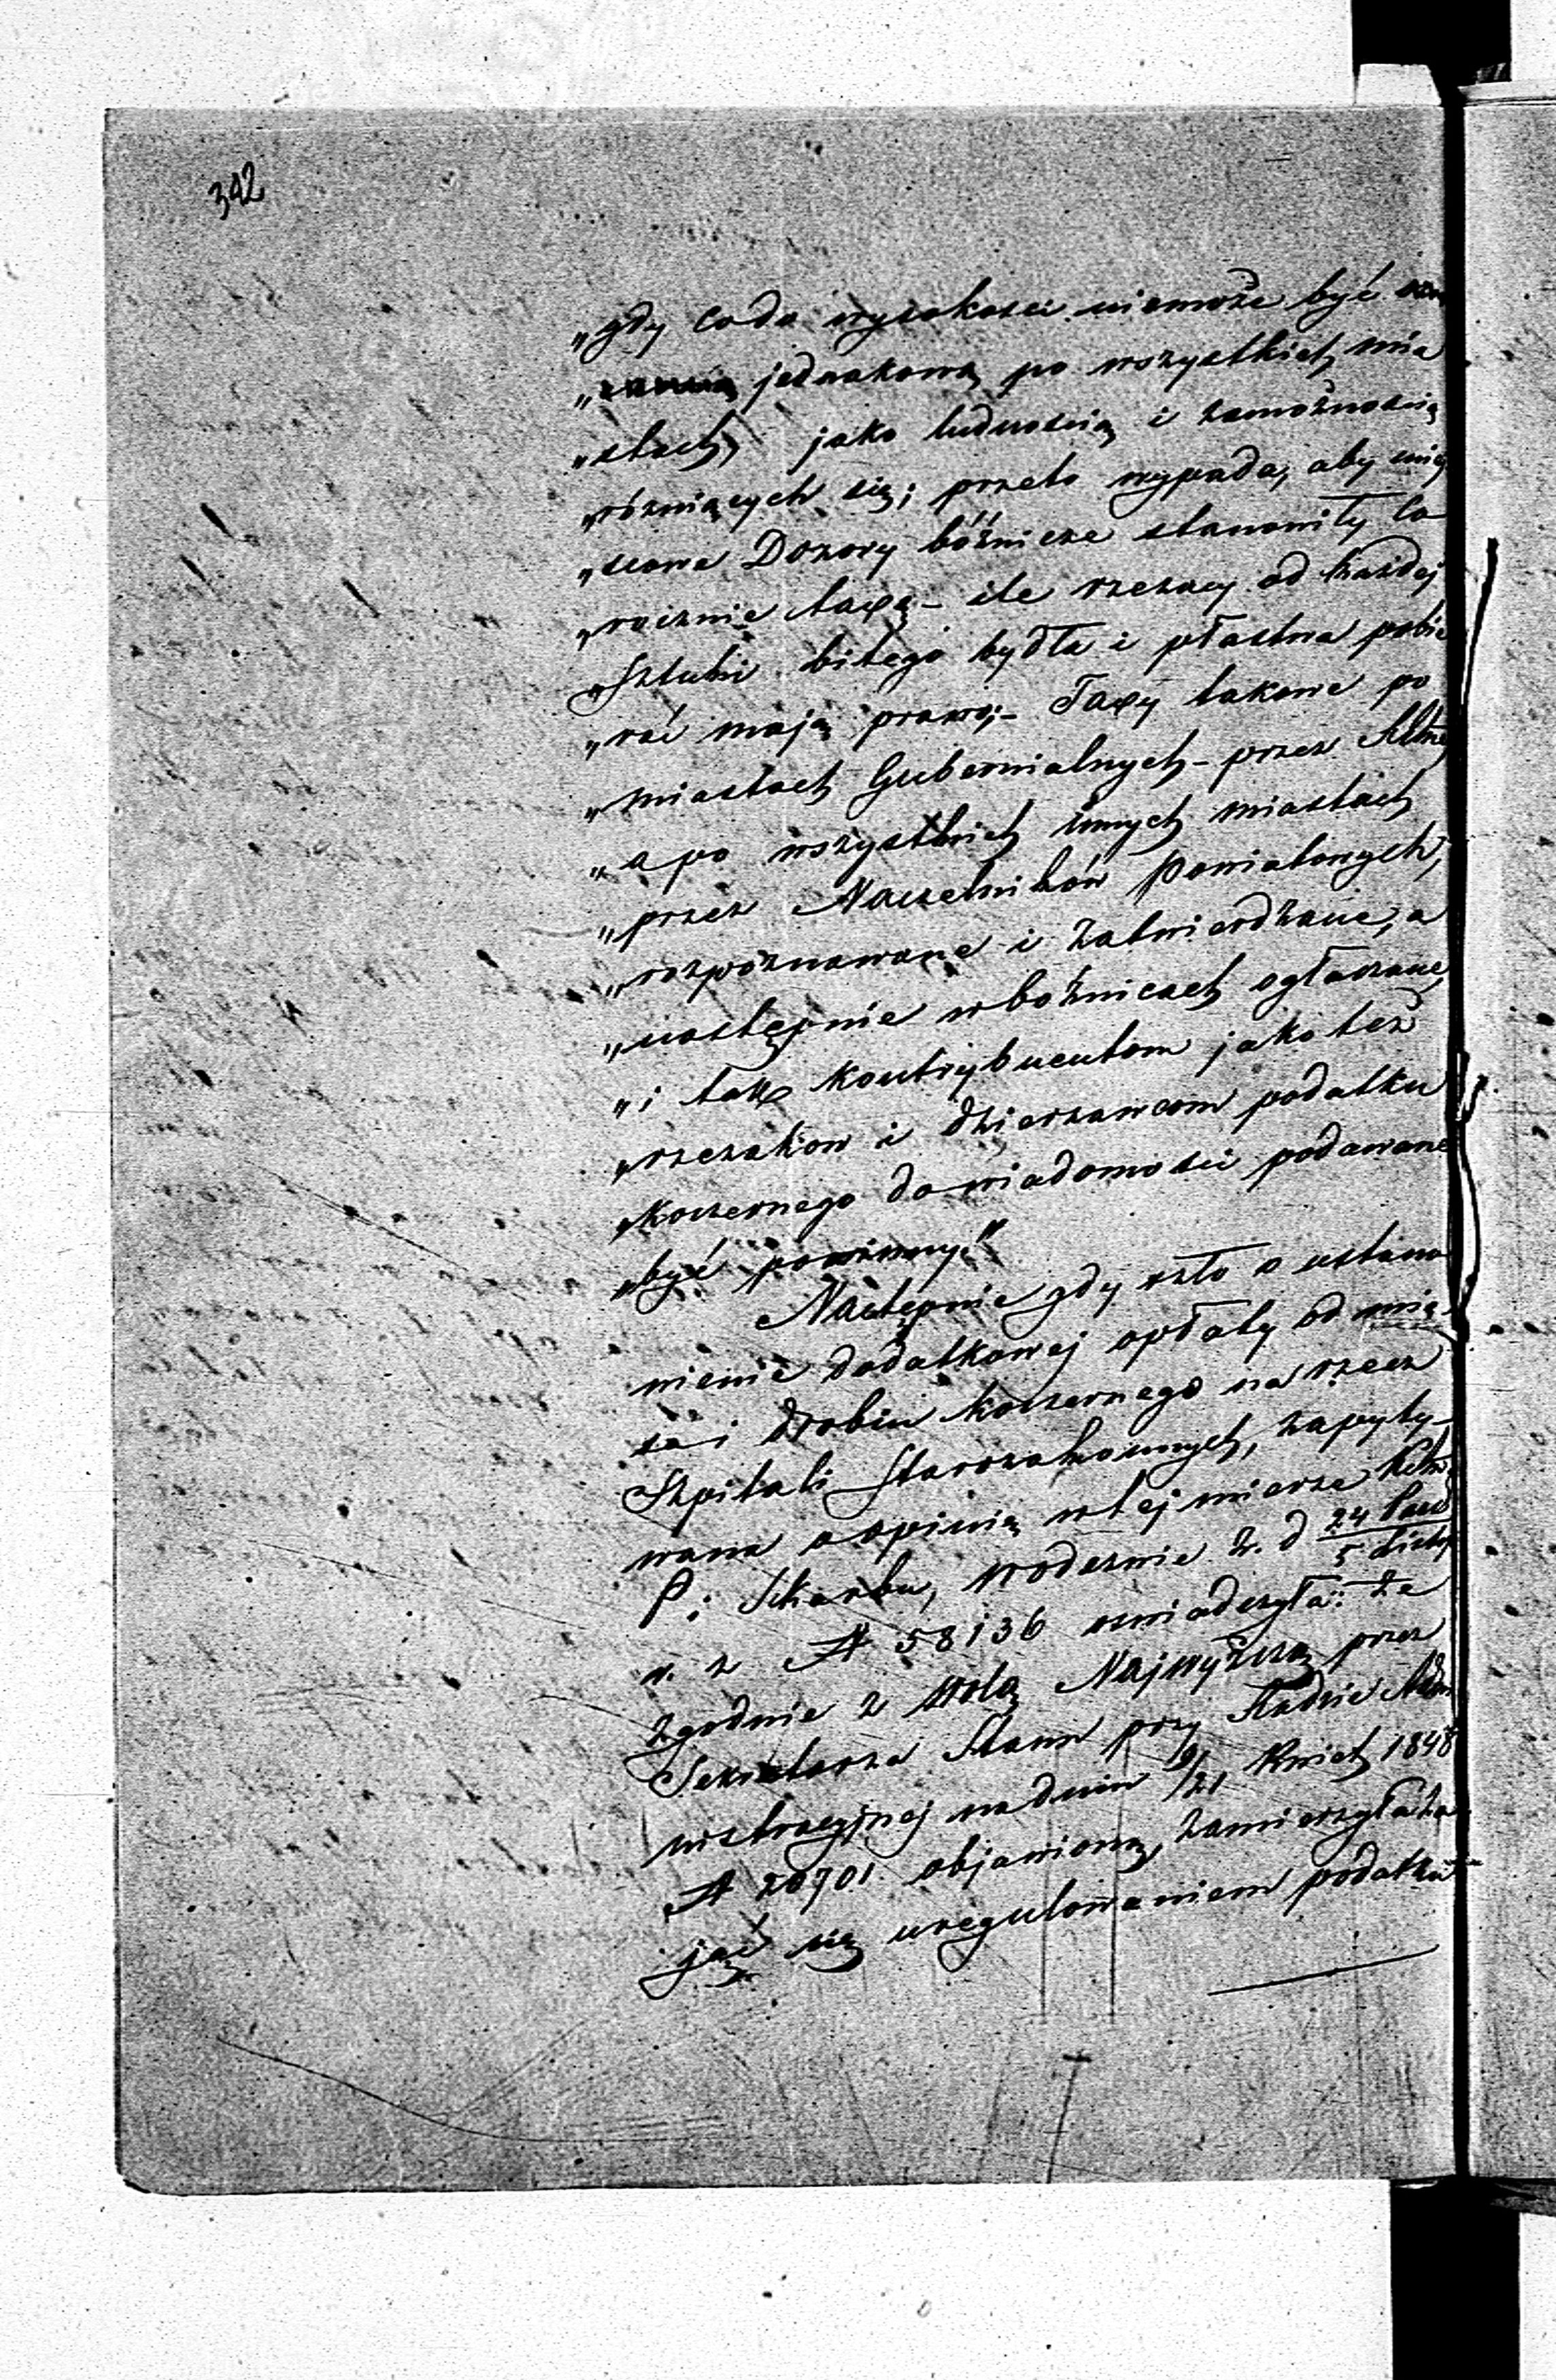 342
„gdy co do wysokości niemoże być
„jednakową po wszystkich mia
„stach, jako ludnością i zamożnością
„różniących się; przeto wypada, aby miej
„scowe Dozory bóźnicze stanowiły co
„rocznie taxę – ile rzezacy od każdej
„Sztuki bitego bydła i ptastwa pobie
„rać mają prawo; – Taxy takowe po
„miastach Gubernialnych – przez
„a po wszystkich innych miastach
„przez Naczelników Powiatowych,
„rozpoznawane i zatwierdzane, a
„następnie w bóźnicach ogłaszane,
„i tak kontrybuentom jako też
„rzezakow i dzierzawcom podatku
„koszernego do wiadomości podawane
„być powinny."
Nactępnie gdy szło o ustano
wienie dodatkowej opłaty od mię
sa i drobiu koszernego na rzecz
Szpitali Starozakonnych, zapyty-
wana o opinię w tej mierze
P. i Skarbu, wodezwie z. d 24 Paźd / 5 Listop
r. z № 58136 oswiadczyła: że
zgodnie z Wolą Najwyższą przez
Sekretarza Stanu przy Radzie Admi
nistracyjnej na dniu 9/21 Kwiet 1848
№ 20701 objawioną, zamierzyła za
jąć się uregulowaniem podatku